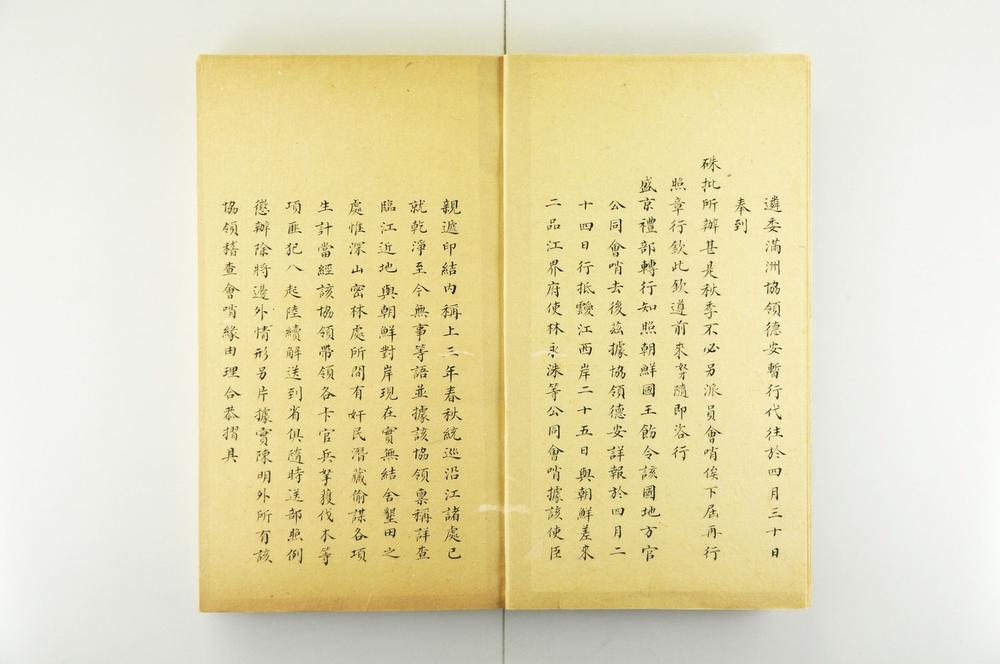 遴委滿洲協領德安暫行代往於四月三十日
奉到
硃批所辦甚是秋季不必另派員會哨俟下屆再行
照章行欽此欽遵前來努隨即咨行
盛京禮部轉行知照朝鮮國王飭令該國地方官
公同會哨去後茲據協領德安詳報於四月二
十四日行抵靉江西岸二十五日與朝鮮差來
二品江界府使林永洙等公同會哨據該使臣
親遞印結內稱上三年春秋統巡沿江諸處已
就乾淨至今無事等語並據該協領稟稱詳查
臨江近地與朝鮮對岸現在實無結舍墾田之
處惟深山密林處所間有奸民潛藏偷謀各項
生計當經該協領帶領各卡官兵拏獲伐木等
項匪犯八起陸續解送到省俱隨時送部照例
懲辦除將邊外情形另片據實陳明外所有該
協領稽查會哨緣由理合恭摺具